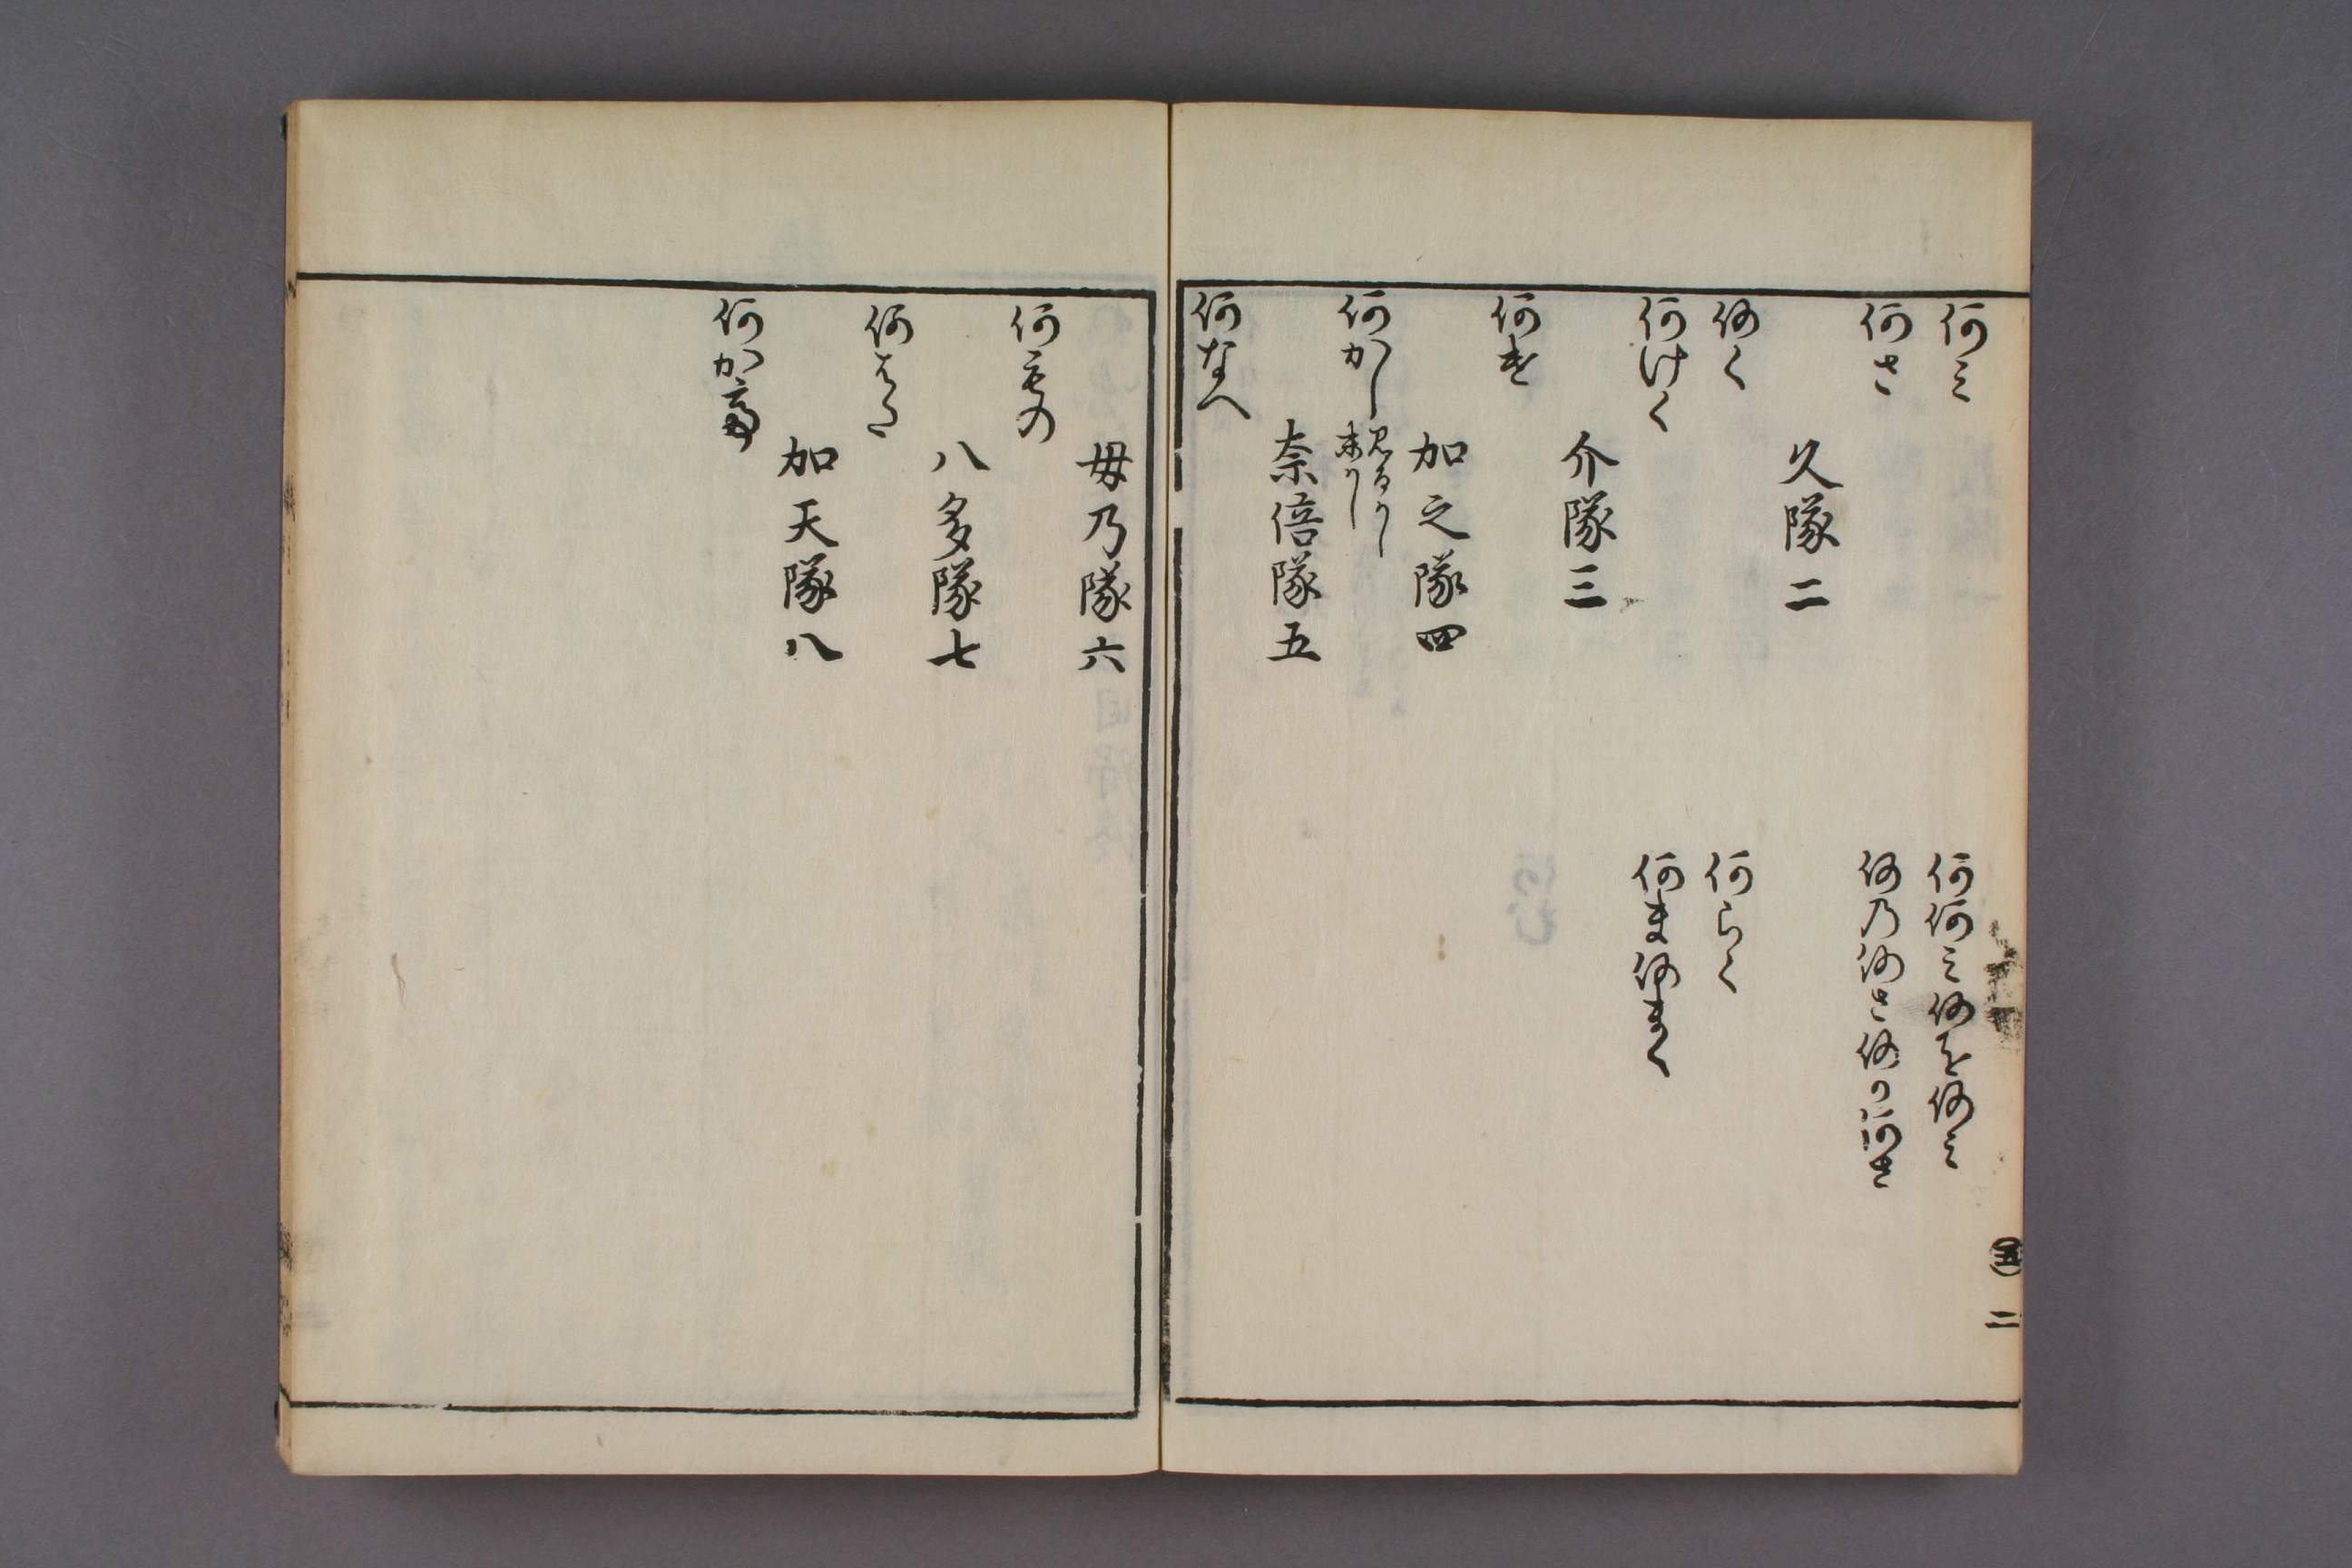 何ミ
何何ミ何を何ミ
何さ
何乃何さ何の何さ
久隊二
何く
何らく
何けく
何ま何まく
介隊三
何け
加之隊四
何かし
奈倍隊五
何なへ
五
二
毋乃隊六
何もの
八多隊七
何はた
加天隊八
何かて